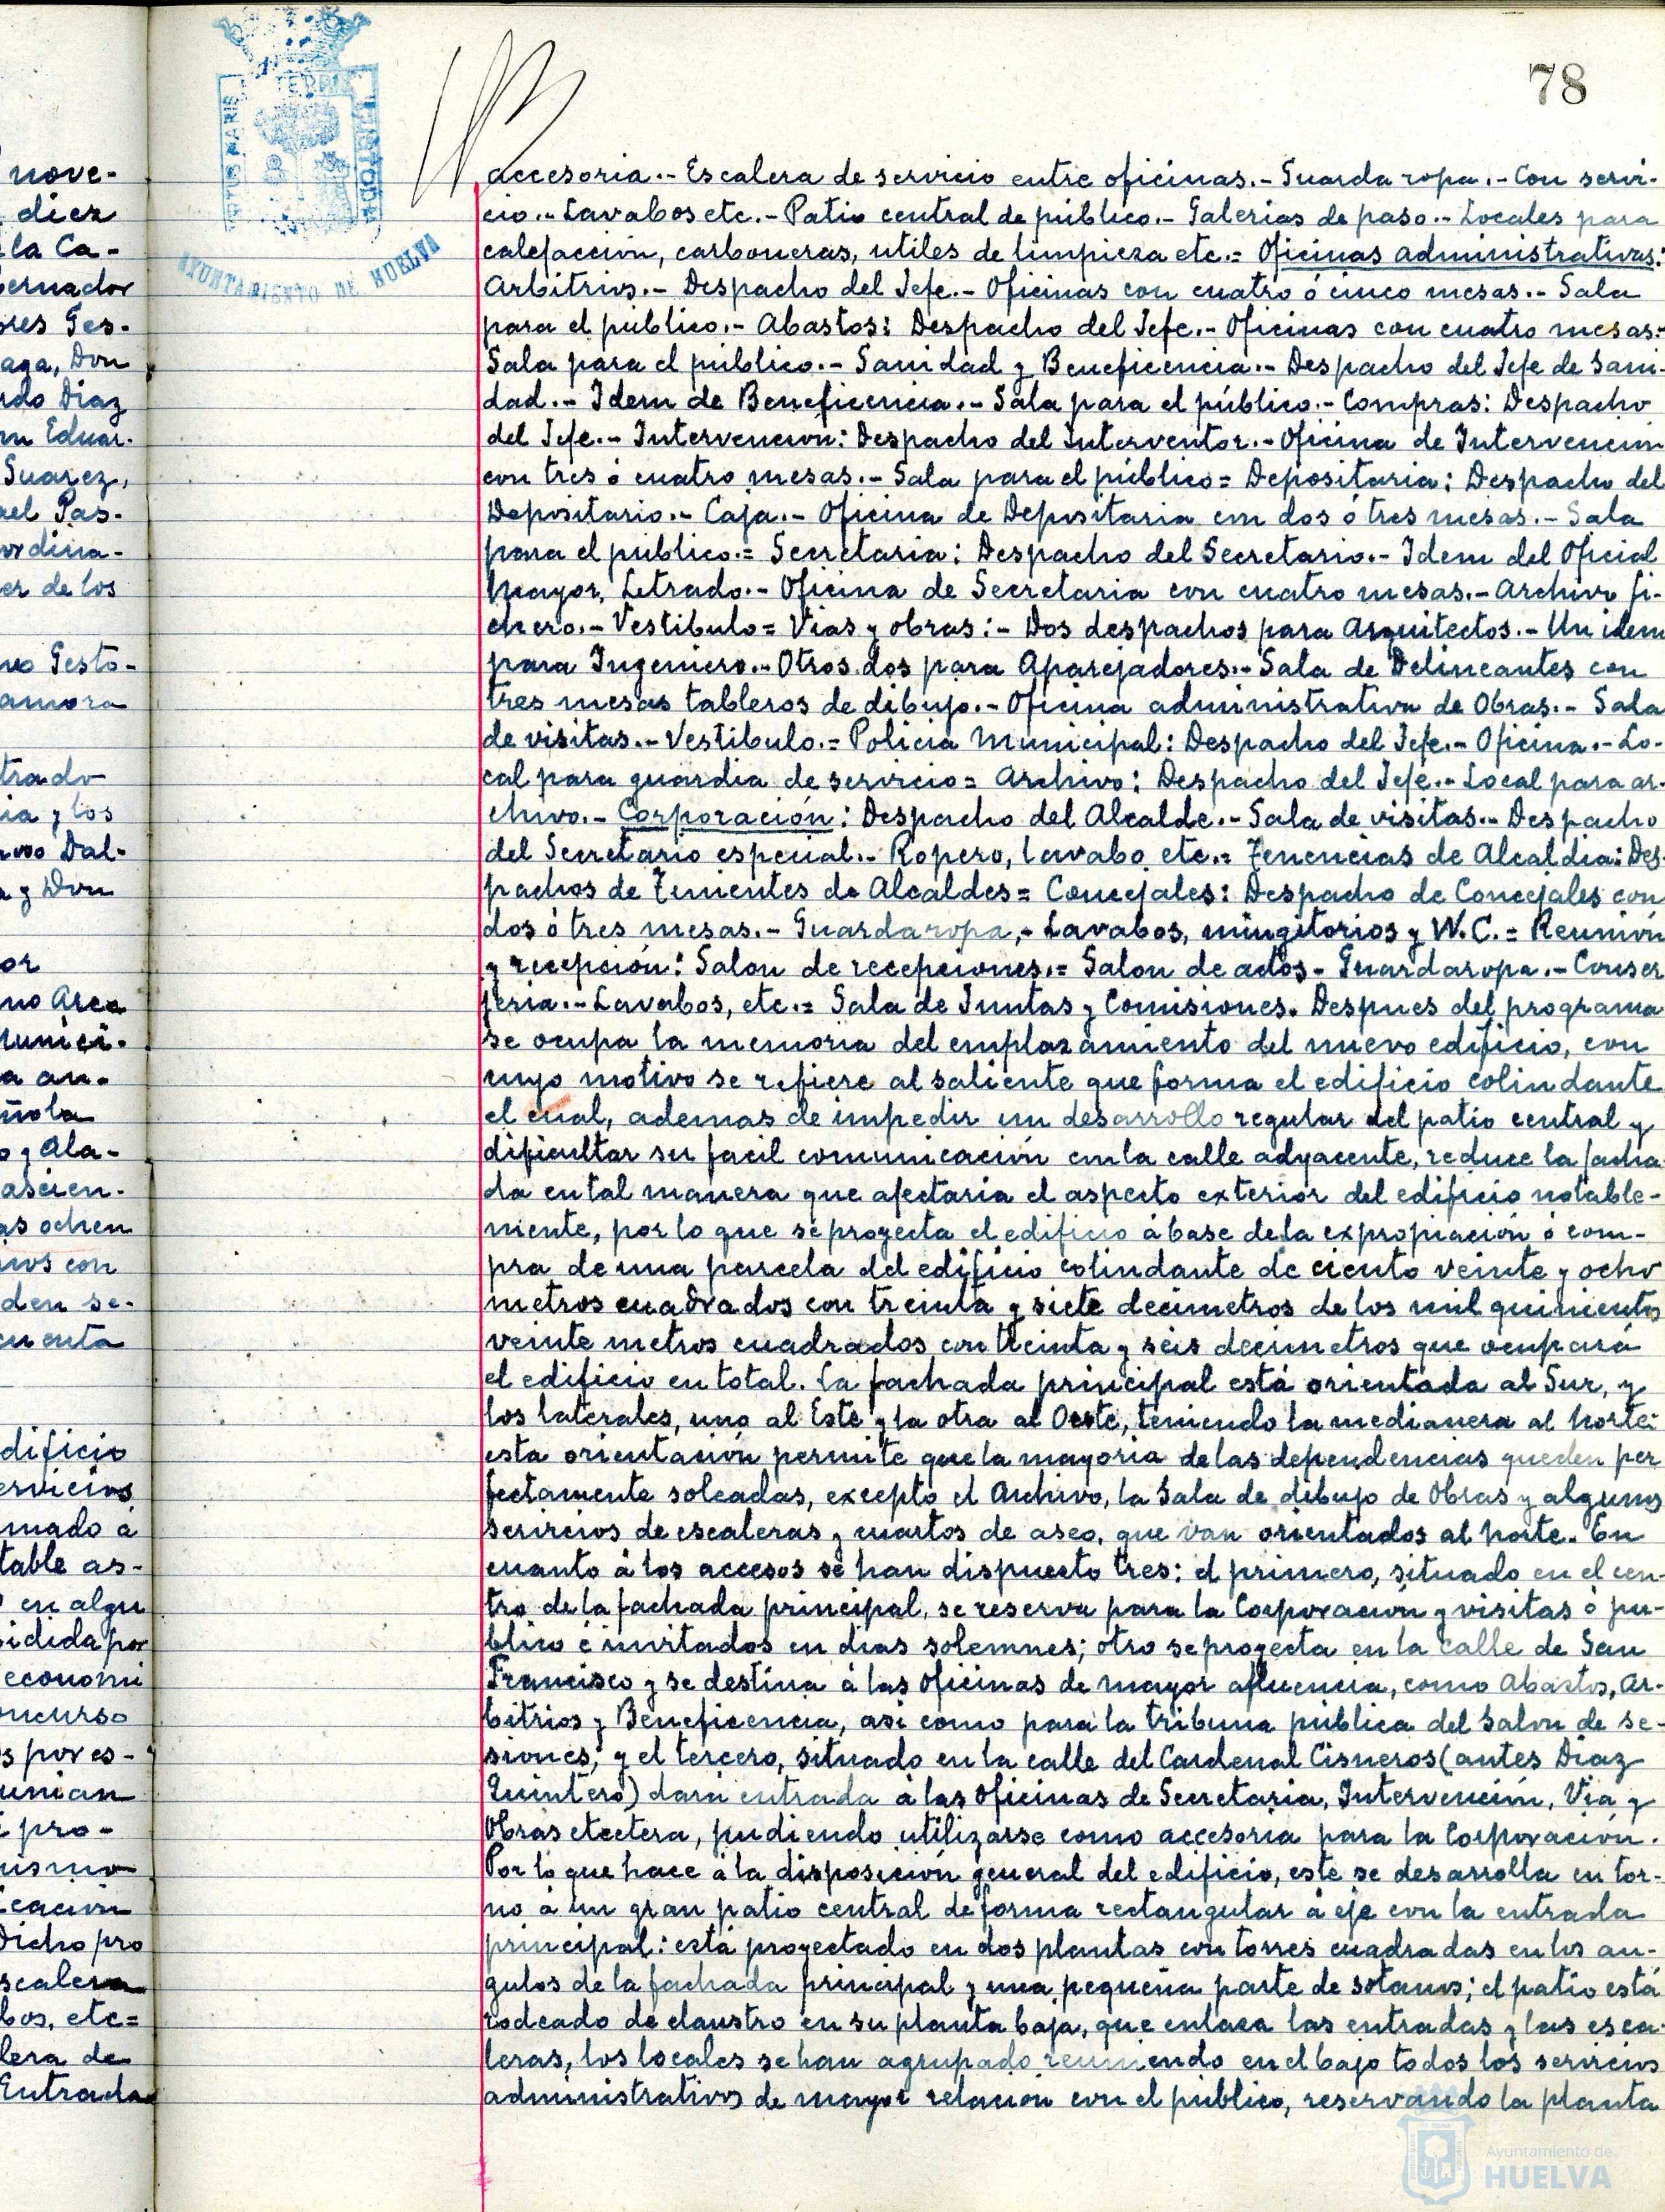 nove-
diez
la Ca-
bernador
ores Ges-
aga, Don
rdo Diaz
Eduar-
Suarez,
ael Pas-
ordina-
er de los
vo Gesto-
amora
trado
ia y los
Dal-
a y Don
or
no Arca
Munici-
a an-
ñola
o y Ala-
ascien-
as ochen
con
den se-
cuenta
dificio
ervicios
mado á
table as-
en algu
sidida por
economi
oncurso
s por es-
unian
pro-
mismo
icación
Dicho pro
scalera
bos, etc=
lera de
Entrada
78
VIRTUS MARIS TERRÆ CUSTODIA
AYUNTAMIENTO DE HUELVA
accesoria.- Escalera de servicio entre oficinas.- Guarda ropa.- Con servi-
cio.- Lavabos etc.- Patio central de público.- Galerias de paso.- Locales para
calefacción, carboneras, utiles de limpieza etc.= Oficinas administrativas:
Arbitrios.- Despacho del Jefe.- Oficinas con cuatro ó cinco mesas.- Sala
para el publico.- Abastos: Despacho del Jefe.- Oficinas con cuatro mesas:-
Sala para el público.- Sanidad y Beneficencia.- Despacho del Jefe de Sani-
dad.- Idem de Beneficencia.- Sala para el público.- Compras: Despacho
del Jefe.- Intervencion: Despacho del Interventor.- Oficina de Intervención
con tres ó cuatro mesas.- Sala para el público= Depositaria: Despacho del
Depositario.- Caja.- Oficina de Depositaria con dos ó tres mesas.- Sala
para el público.= Secretaria: Despacho del Secretario.- Idem del Oficial
Mayor, Letrado.- Oficina de Secretaria con cuatro mesas.- Archivo fi-
chero.- Vestibulo= Vias y obras:- Dos despachos para Arquitectos.- Un idem
para Ingeniero.- Otros dos para Aparejadores.- Sala de Delineantes con
tres mesas tableros de dibujo.- Oficina administrativa de Obras.- Sala
de visitas.- Vestibulo.= Policia Municipal: Despacho del Jefe.- Oficina.- Lo-
cal para guardia de servicio= Archivo: Despacho del Jefe.- Local para ar-
chivo.- Corporación: Despacho del Alcalde.- Sala de visitas.- Despacho
del Secretario especial.- Ropero, lavabo etc.= Tenencias de Alcaldia: Des-
pachos de Tenientes de Alcaldes= Concejales: Despacho de Concejales con
dos ó tres mesas.- Guardaropa,- Lavabos, mingitorios y W.C.= Reunión
y recepción: Salon de recepciones.= Salon de actos- Guardaropa.- Conser
jeria.- Lavabos, etc.= Sala de Juntas y Comisiones. Despues del programa
se ocupa la memoria del emplazamiento del nuevo edificio, con
cuyo motivo se refiere al saliente que forma el edificio colindante
el cual, ademas de impedir un desarrollo regular del patio central y
dificultar su facil comunicación con la calle adyacente, reduce la facha-
da en tal manera que afectaria el aspecto exterior del edificio notable-
mente, por lo que se proyecta el edificio á base de la expropiación ó com-
pra de una parcela del edificio colindante de ciento veinte y ocho
metros cuadrados con treinta y siete decimetros de los mil quinientos
veinte metros cuadrados con treinta y seis decimetros que ocupará
el edificio en total. La fachada principal está orientada al Sur, y
los laterales, uno al Este y la otra al Oeste, teniendo la medianera al Norte:
esta orientación permite que la mayoria de las dependencias queden per
fectamente soleadas, excepto el Archivo, la Sala de dibujo de Obras y algunos
servicios de escaleras y cuartos de aseo, que van orientados al norte. En
cuanto á los accesos se han dispuesto tres: el primero, situado en el cen-
tro de la fachada principal, se reserva para la Corporación y visitas ó pu-
blico é invitados en dias solemnes; otro se proyecta en la calle de San
Francisco y se destina á las oficinas de mayor afluencia, como Abastos, Ar-
bitrios y Beneficencia, asi como para la tribuna pública del Salon de se-
siones; y el tercero, situado en la calle del Cardenal Cisneros (antes Diaz
Quintero) dará entrada á las oficinas de Secretaria, Intervención, Via y
Obras etcetera, pudiendo utilizarse como accesoria para la Corporación.
Por lo que hace á la disposición general del edificio, este se desarrolla en tor-
no á un gran patio central de forma rectangular á eje con la entrada
principal: está proyectado en dos plantas con torres cuadradas en los an-
gulos de la fachada principal y una pequeña parte de sotano; el patio está
rodeado de claustro en su planta baja, que enlaza las entradas y las esca-
leras, los locales se han agrupado reuniendo en el bajo todos los servicios
administrativos de mayor relación con el público, reservando la planta
Ayuntamiento de
HUELVA